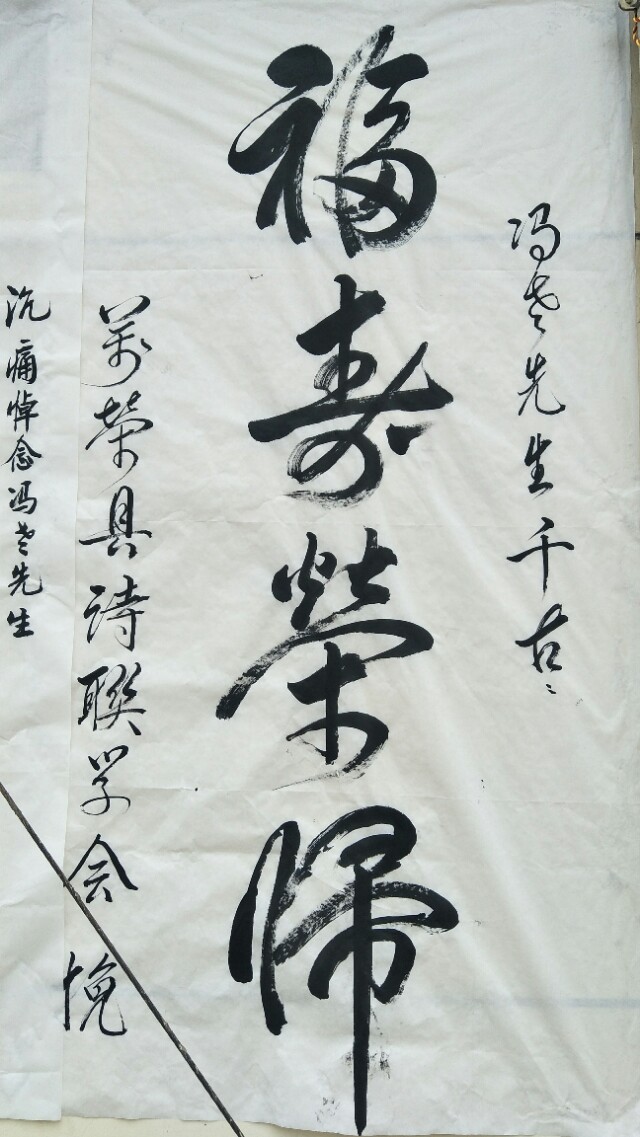 冯老先生千古
福寿荣归
万荣县诗联学会 挽
沉痛悼念冯老先生